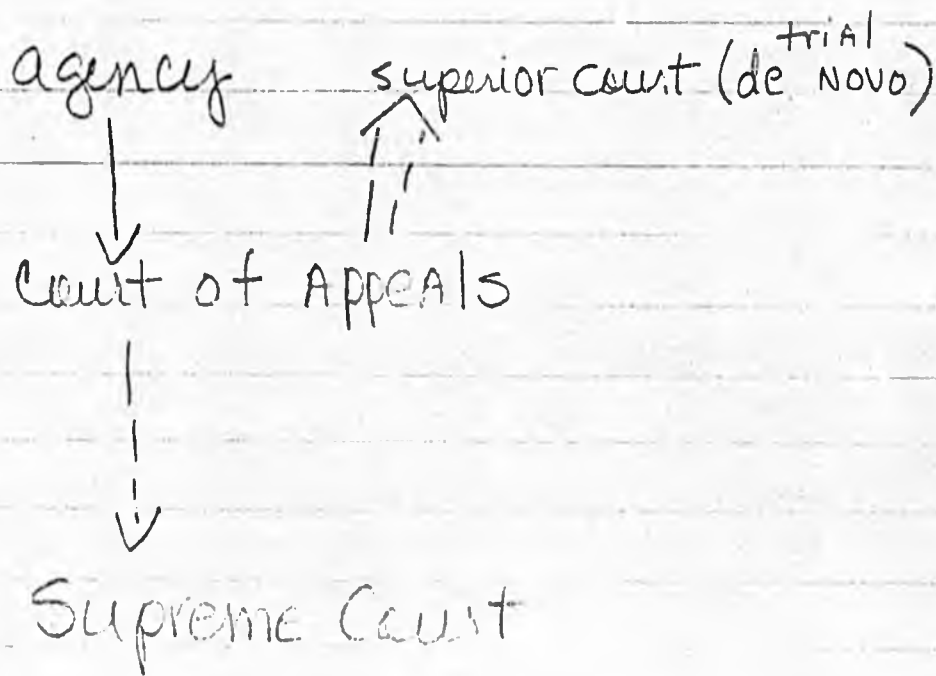 agency superior court (de trial novo)
Court of Appeals
Supreme Court